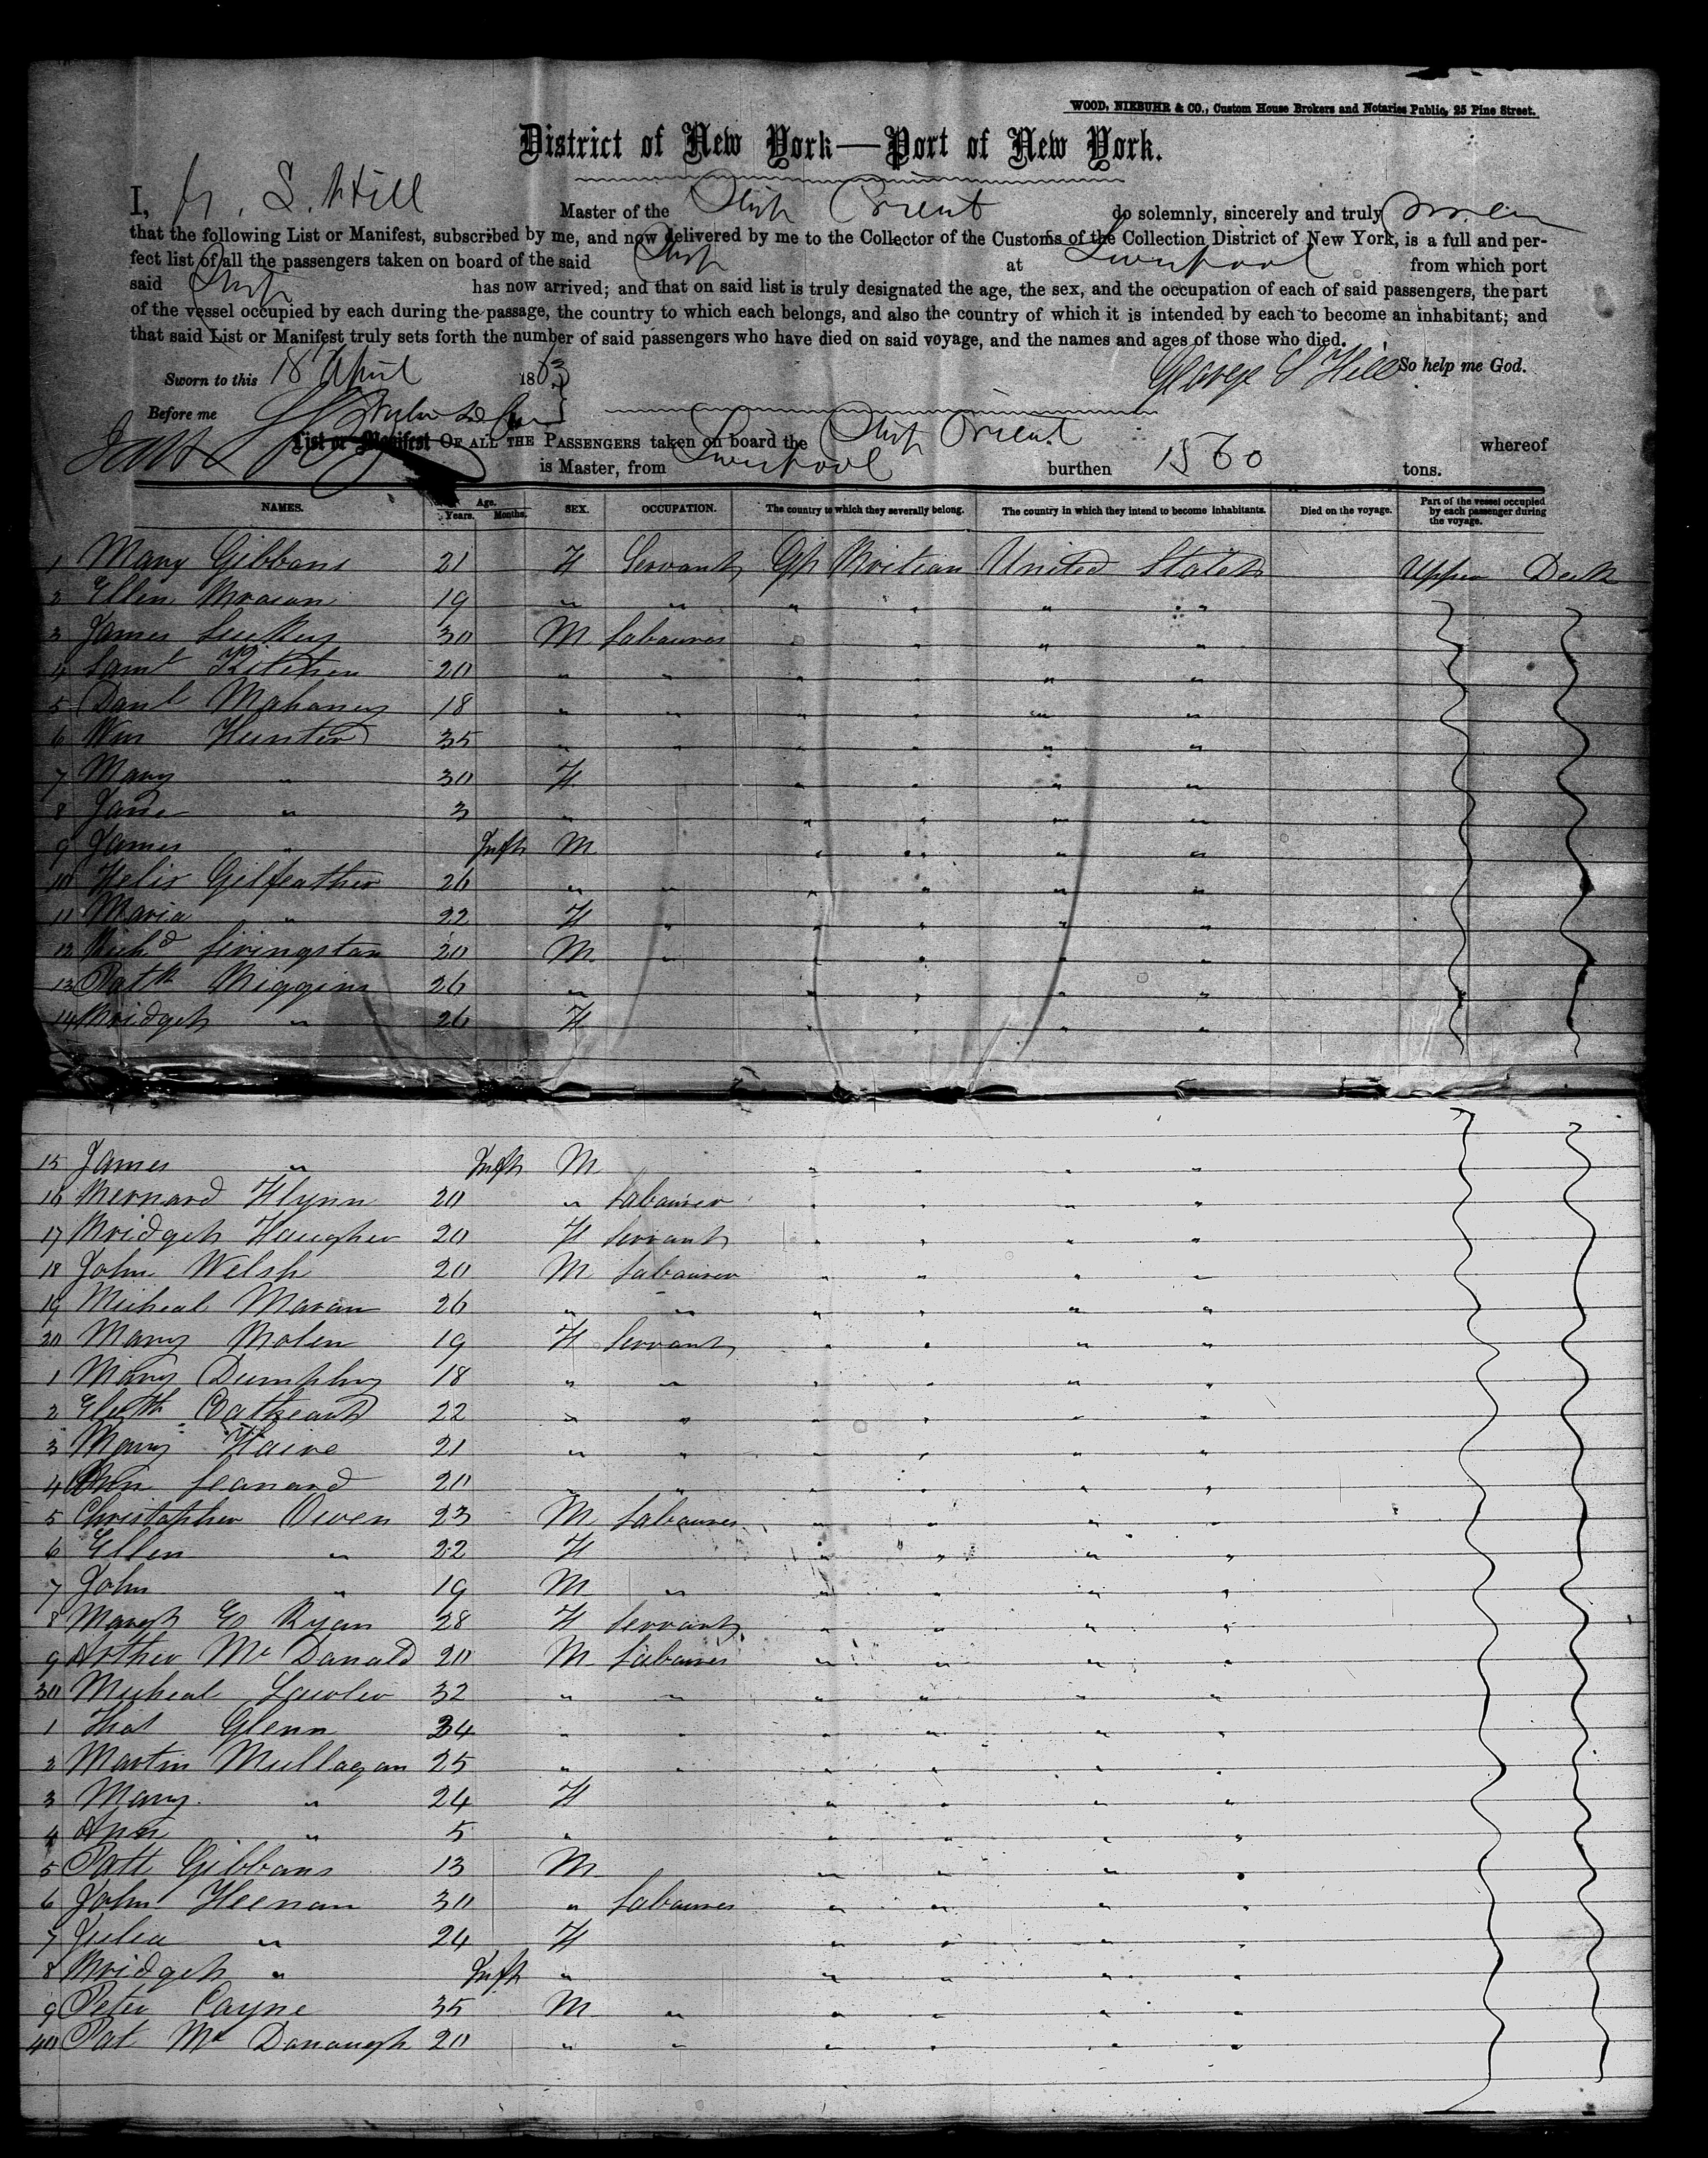 WOOD, NIEBUHR & CO., Custom House Brokers and Notaries Public, 25 Pine Street.
District of New York—Port of New York.
I, G. S. Hill Master of the Ship Orient do solemnly, sincerely and truly swear
that the following List or Manifest, subscribed by me, and now delivered by me to the Collector of the Customs of the Collection District of New York, is a full and per-
fect list of all the passengers taken on board of the said Ship at Liverpool from which port
said Ship has now arrived; and that on said list is truly designated the age, the sex, and the occupation of each of said passengers, the part
of the vessel occupied by each during the passage, the country to which each belongs, and also the country of which it is intended by each to become an inhabitant; and
that said List or Manifest truly sets forth the number of said passengers who have died on said voyage, and the names and ages of those who died.
Sworn to this 18 April 1863 George S Hill So help me God.
Before me
List or Manifest OF ALL THE PASSENGERS taken on board the Ship Orient whereof
is Master, from Liverpool burthen 1560 tons.
NAMES. Age. Years. Months. SEX. OCCUPATION. The country to which they severally belong. The country in which they intend to become inhabitants. Died on the voyage. Part of the vessel occupied by each passenger during the voyage.
1 Mary Gibbons 21 F Servant Gt Britian United States Upper Deck
2 Ellen 19 " " " " " "
3 James 30 M Labourer " " "
4 Saml Kitchen 20 " " " " " "
5 Danl Mahoney 18 " " " " " "
6 Wm Hunter 35 " " " " " "
7 Mary " 30 F " " " "
8 Jane " 3 " " " " "
9 James " Inft M " " " "
10 Felix Gilfeather 26 " " " " " "
11 Maria " 22 F " " " " "
12 Richd Livingston 20 M " " " " "
13 Patk Higgins 26 " " " " "
14 Bridget " 26 F " " " "
15 James " Inft M " " " "
16 Bernard Flynn 20 " Labourer " " " "
17 Bridget Haugher 20 F Servant " " " "
18 John Welsh 20 M Labourer " " " "
19 Micheal Moran 26 " " " " " "
20 Mary Nolen 19 F Servant " " " "
1 Mary Dumphy 18 " " " " " "
2 22 " " " " " "
3 Mary 21 " " " " " "
4 Ann Leanard 20 " " " " " "
5 Christopher Owen 23 M Labourer " " " "
6 Ellen " 22 F " " " "
7 John " 19 M " " " " "
8 Margt Ryan 28 F Servant " " " "
9 Arther Mc Danald 20 M Labourer " " " "
30 Micheal Lawler 32 " " " " " "
1 Thos Glenn 34 " " " " " "
2 Martin Mullagan 25 " " " " " "
3 Mary " 24 F " " " "
4 Ann " 5 " " " " "
5 Patt Gibbons 13 M " " " "
6 John Heenan 30 " Labourer " " " "
7 Julia " 24 F " " " "
8 Bridget " Inft " " " " "
9 Peter Cayne 35 M " " " " "
40 Pat Mc Danaugh 20 " " " " " "